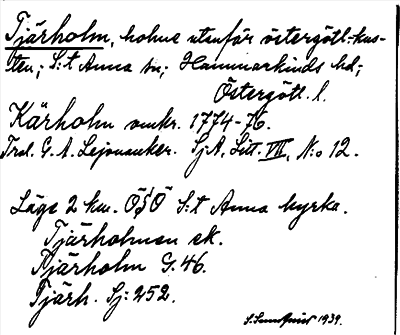 Tjärholm, holme utanför östergötl.-kus-
ten; S:t Anna sn; Hammarkinds hd;
Östergötl. l.
Kärholm omkr. 1774-76.
Trol. G. A. Lejonanker. SjA, Litt. VIII, N:o 12.
Läge 2 km. ÖSÖ S:t Anna kyrka.
Tjärholmen ek.
Kjärholm G. 46.
Tjärh. Sj: 252.
1939.